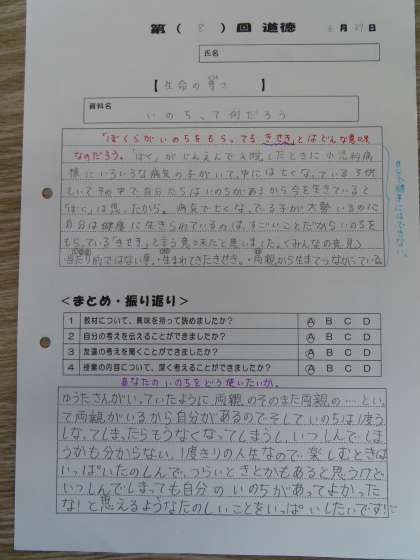 第（ 8 ）回 道徳 6月29日
氏名
【 生命の尊さ 】
資料名
いのちって何だろう
「ぼくらがいのちをもらってるきせき」とはどんな意味
なのだろう。「ぼく」がじんえんで入院したときに小児科病
棟にいろいろな病気の子がいて、中には亡くなっている子が
いてその中で自分たちはいのちがあるから今を生きていると
「ぼく」は思ったから。病気で亡くなっている子が大勢いるのに
自分は健康に生きられているのは、すごいことだからいのちを
もらっている「きせき」と言う意味だと思いました。くみんなの意見〉
・当たり前ではない事。・生まれてきたきせき。・両親から生まてつながっている
自分で勝手にはできない。
＜まとめ・振り返り＞
1 教材について、興味を持って読めましたか？ A B C D
2 自分の考えを伝えることができましたか？ A B C D
3 友達の考えを聞くことができましたか？ A B C D
4 授業の内容について、深く考えることができましたか？ A B C D
あなたのいのちをどう使いたいか。
ゆうたさんがいっていたように、両親のそのまた両親の…といっ
て両親がいるから自分があるのでそしていのちは1度う
しなってしまったらもうなくなってしまうし、いつしんでしま
うかも分からない、1度きりの人生なので楽しむときは
いっぱいたのしんで、つらいときとかもあると思うけど
いつしんでしまっても自分のいのちがあってよかった
な!と思えるようなたのしいことをいっぱいしたいです!